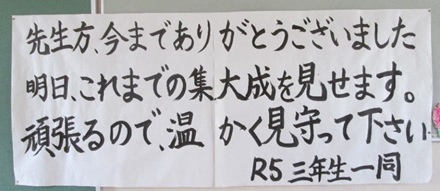 先生方、今までありがとうございました
明日、これまでの集大成を見せます。
頑張るので、温かく見守って下さい
R5 三年生一同